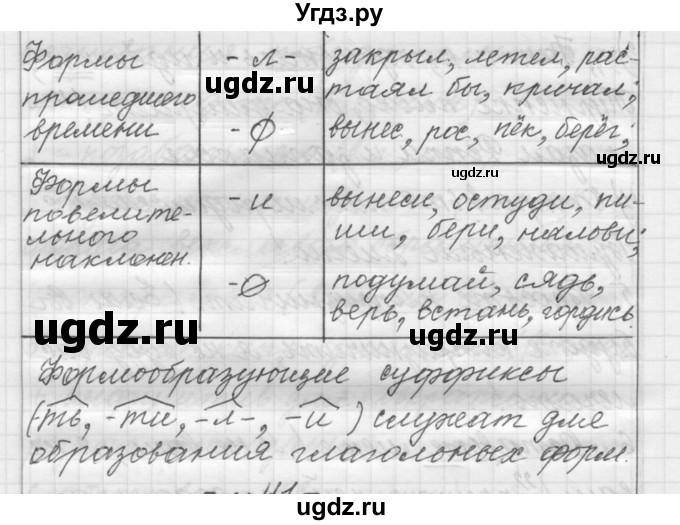 Угдз.ру
Формы - л - закрыл, летел, рас-
прошедшего таял бы, кричал;
времени - ∅ вынес, рос, пёк, берёг;
Формы - и вынеси, остуди, пи-
повелите- ши, бери, налови;
льного
наклонен. - ∅ подумай, сядь,
верь, встань, гордись.
Формообразующие суффиксы
(-ть, -ти, -л-, -и) служат для
образования глагольных форм.
ugdz.ru
ugdz.ru
ugdz.ru
ugdz.ru
ugdz.ru
ugdz.ru
ugdz.ru
ugdz.ru